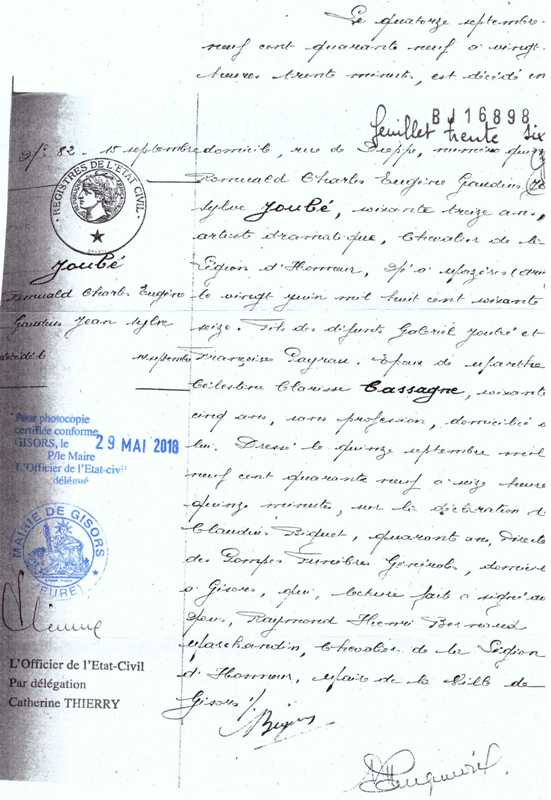 Le quatorze septembre
neuf cent quarante neuf à vingt
heures trente minutes, est décédé en
BJ16898
feuillet trente six
N° 82. 15 septembre
domicile, rue de Dieppe, numéro
Romuald Charles Eugène Gaudens
Sylve Joubé, soixante treize ans,
artiste dramatique, Chevalier de la
Légion d'Honneur, né à Mazères
le vingt juin mil huit cent soixante
seize. Fils des défunts Gabriel Joubé et
Françoise Payrau. Époux de Marthe
Célestine Clarisse Cassagne, soixante
cinq ans, sans profession, domiciliée à
lui. Dressé le quinze septembre mil
neuf cent quarante neuf à seize heures
quinze minutes, sur la déclaration d
Claudius Biquet, quarante ans, Direct
des Pompes Funèbres Générales, domicil
à Gisors, qui, lecture faite a signé av
Nous, Raymond Henri Bernard
Marchandin, Chevalier de la Légion
d'Honneur, Maire de la Ville de
Gisors
REGISTRES DE L'ETAT CIVIL
Joubé
Romuald Charles Eugène
Gaudens Jean Sylve
décédé le 14 septembre
Pour photocopie
certifiée conforme,
GISORS, le 29 MAI 2018
P/le Maire
L'Officier de l'Etat-civil
délégué
MAIRIE DE GISORS
(EURE)
L'Officier de l'Etat-Civil
Par délégation
Catherine THIERRY